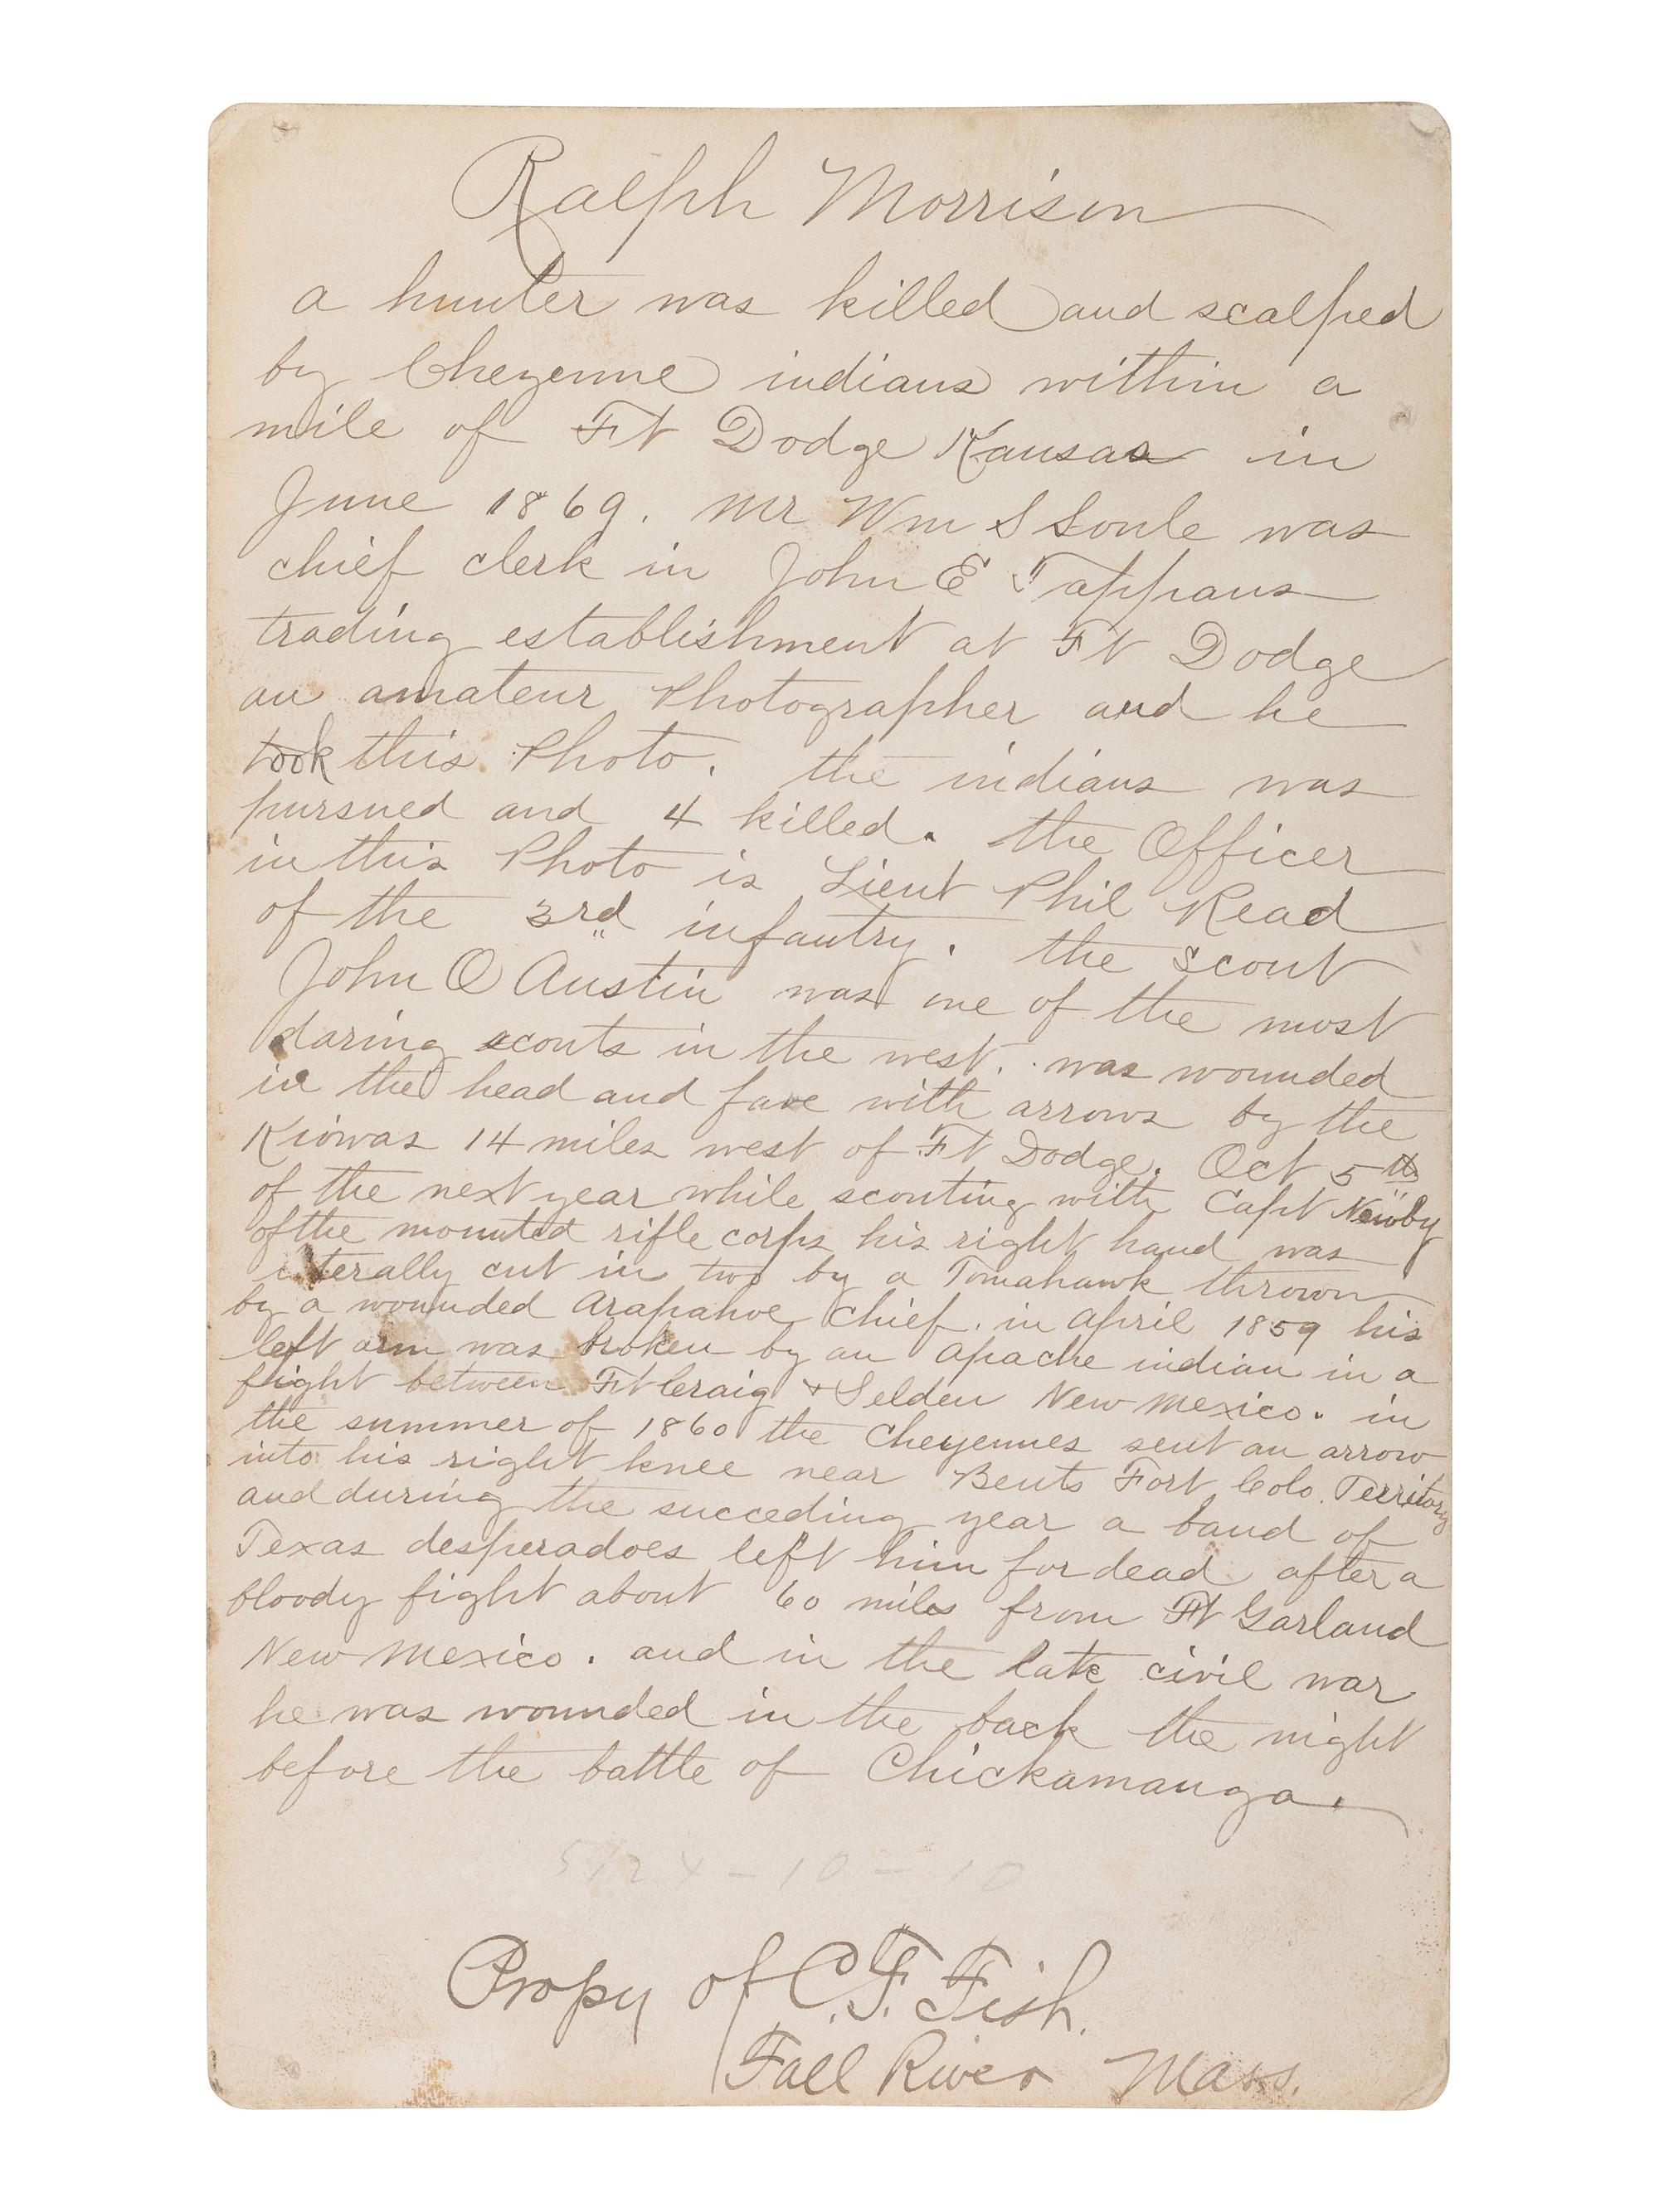 Ralph Morrison
a hunter was killed and scalped
by Cheyenne indians within a
mile of Ft Dodge Kansas in
June 1869. Mr Wm S Soule was
chief clerk in John E Tappans
trading establishment at Ft Dodge
an amateur Photographer and he
took this Photo. the indians was
pursued and 4 killed. the Officer
in this Photo is Lieut Phil Read
of the 3rd infantry. the scout
John O Austin was one of the most
daring scouts in the west. was wounded
in the head and face with arrows by the
Kiowas 14 miles west of Ft Dodge. Oct 5th
of the next year while scouting with Capt Newby
of the mounted rifle corps his right hand was
literally cut in two by a Tomahawk thrown
by a wounded Arapahoe Chief. in April 1859 his
left arm was broken by an apache indian in a
fight between Ft Craig + Selden New Mexico. in
the summer of 1860 the Cheyennes sent an arrow
into his right knee near Bents Fort Colo. Territory
and during the succeding year a band of
Texas desperadoes left him for dead after a
bloody fight about 60 miles from Ft Garland
New Mexico. and in the late civil war
he was wounded in the back the night
before the battle of Chickamauga.
Propy of C. F. Fish.
Fall River Mass.